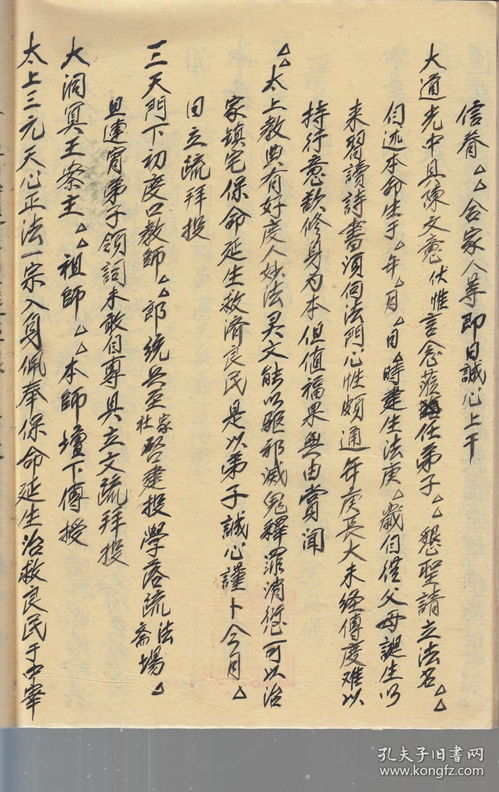 信眷△△合家人等即日誠心上干
大道光中具陳文意伏惟言念蒞任弟子△懇聖請立法名△△
自述本命生于△年△月△日△時建生法庚△歲自從父母誕生以
来習讀詩書須伺法門心性頗通年庚長大未经傳度难以
持行意欲修身为本但值福果無由嘗聞
△△太上教典有好度人妙法灵文能以驅邪滅鬼釋罪消愆可以治
家镇宅保命延生救濟良民是以弟子誠心謹卜今月△
日立疏拜投
三天門下初度口教師△△郎統兵至家社啓建投學落疏法齋場△
且連宵弟子領詞未敢自專具立文疏拜投
大洞冥王案主△△祖師△△本師壇下傳授
太上三元天心正法一宗入身佩奉保命延生治救良民于中宰
孔夫子旧书网
www.kongfz.com